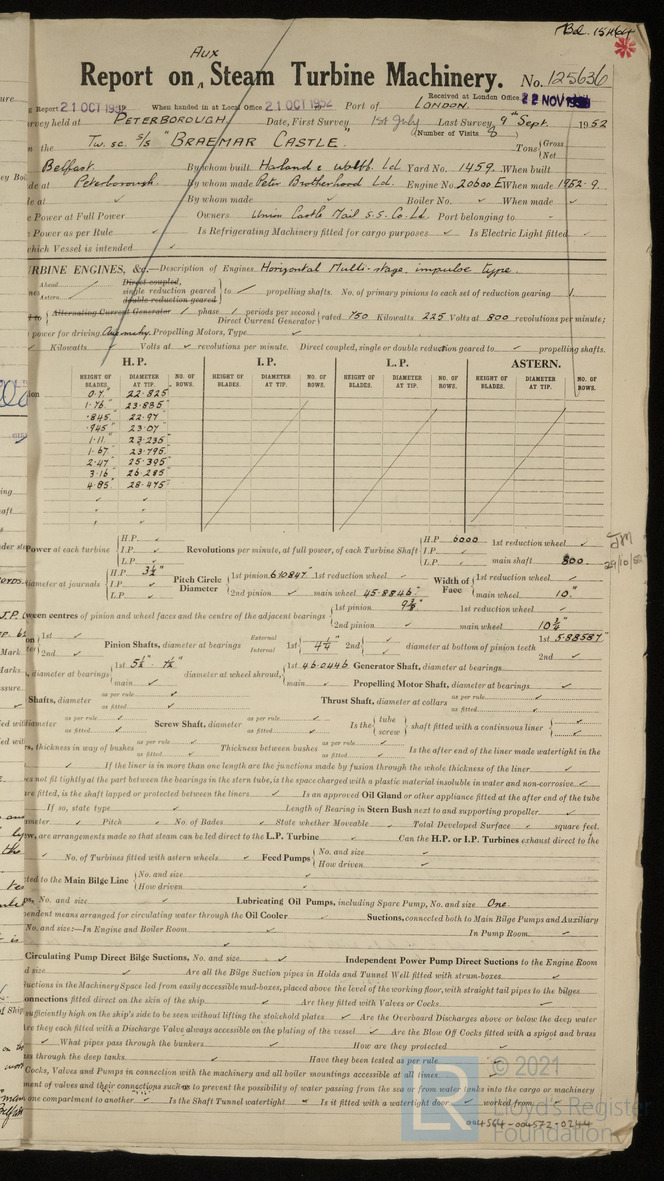 Bd. 15464
Aux
Report on Steam Turbine Machinery. No. 125636
Report 21 OCT 1952 When handed in at Local Office 21 OCT 1952 Port of LONDON. Received at London Office NOV 1952
held at PETERBOROUGH, Date, First Survey 1st July Last Survey 9th Sept. 1952
(Number of Visits 8)
the Tw. sc. s/s "BRAEMAR CASTLE" Tons Gross Net
Belfast. By whom built Harland & Wolff. Ld Yard No. 1459. When built
at Peterborough. By whom made Peter Brotherhood Ld. Engine No. 20600 E When made 1952. 9.
at ✓ By whom made ✓ Boiler No. ✓ When made ✓
Power at Full Power Owners Union Castle Mail S.S. Co. Ld. Port belonging to
Power as per Rule ✓ Is Refrigerating Machinery fitted for cargo purposes ✓ Is Electric Light fitted ✓
which Vessel is intended ✓
TURBINE ENGINES, &c.—Description of Engines Horizontal Multi-stage, impulse type.
Ahead Astern Direct coupled, single reduction geared double reduction geared to ✓ propelling shafts. No. of primary pinions to each set of reduction gearing 1.
Alternating Current Generator phase periods per second Direct Current Generator rated 750 Kilowatts 225 Volts at 800 revolutions per minute;
power for driving Propelling Motors, Type
Kilowatts Volts at ✓ revolutions per minute. Direct coupled, single or double reduction geared to ✓ propelling shafts.
H.P. I.P. L.P. ASTERN.
HEIGHT OF BLADES. DIAMETER AT TIP. NO. OF ROWS. HEIGHT OF BLADES. DIAMETER AT TIP. NO. OF ROWS. HEIGHT OF BLADES. DIAMETER AT TIP. NO. OF ROWS. HEIGHT OF BLADES. DIAMETER AT TIP. NO. OF ROWS.
0.7" 22.825"
1.76" 23.885"
.845" 22.97"
.945" 23.07"
1.11" 23.235"
1.67" 23.795"
2.47" 25.395"
3.16" 26.285"
4.85" 28.475"
Power at each turbine H.P. ✓ I.P. ✓ L.P. ✓ Revolutions per minute, at full power, of each Turbine Shaft H.P. 6000 I.P. ✓ L.P. ✓ 1st reduction wheel ✓ main shaft 800.
JM 29/10/52
diameter at journals H.P. 3½" I.P. ✓ L.P. ✓ Pitch Circle Diameter 1st pinion 6.10847" 1st reduction wheel ✓ 2nd pinion ✓ main wheel 45.8846" Width of Face 1st reduction wheel ✓ main wheel 10."
between centres of pinion and wheel faces and the centre of the adjacent bearings 1st pinion 2nd pinion ✓ 1st reduction wheel ✓ main wheel 10¾"
1st ✓ 2nd ✓ Pinion Shafts, diameter at bearings External Internal 1st 4¼" 2nd ✓ diameter at bottom of pinion teeth 1st 5.88587" 2nd ✓
diameter at bearings 1st main ✓ diameter at wheel shroud, 1st 46.0446 main ✓ Generator Shaft, diameter at bearings
Propelling Motor Shaft, diameter at bearings ✓
Shafts, diameter as per rule ✓ as fitted ✓ Thrust Shaft, diameter at collars as per rule ✓ as fitted ✓
diameter as per rule ✓ as fitted ✓ Screw Shaft, diameter as per rule ✓ as fitted ✓ Is the tube screw shaft fitted with a continuous liner ✓
thickness in way of bushes as per rule ✓ as fitted ✓ Thickness between bushes as per rule ✓ as fitted ✓ Is the after end of the liner made watertight in the
✓ If the liner is in more than one length are the junctions made by fusion through the whole thickness of the liner ✓
not fit tightly at the part between the bearings in the stern tube, is the space charged with a plastic material insoluble in water and non-corrosive ✓
are fitted, is the shaft lapped or protected between the liners ✓ Is an approved Oil Gland or other appliance fitted at the after end of the tube
If so, state type ✓ Length of Bearing in Stern Bush next to and supporting propeller ✓
✓ Pitch ✓ No. of Blades ✓ State whether Moveable ✓ Total Developed Surface ✓ square feet.
are arrangements made so that steam can be led direct to the L.P. Turbine ✓ Can the H.P. or I.P. Turbines exhaust direct to the
✓ No. of Turbines fitted with astern wheels ✓ Feed Pumps No. and size ✓ How driven ✓
to the Main Bilge Line No. and size ✓ How driven ✓
No. and size ✓ Lubricating Oil Pumps, including Spare Pump, No. and size One.
means arranged for circulating water through the Oil Cooler ✓ Suctions, connected both to Main Bilge Pumps and Auxiliary
No. and size:—In Engine and Boiler Room ✓ In Pump Room ✓
Circulating Pump Direct Bilge Suctions, No. and size ✓ Independent Power Pump Direct Suctions to the Engine Room
size ✓ Are all the Bilge Suction pipes in Holds and Tunnel Well fitted with strum-boxes ✓
Suctions in the Machinery Space led from easily accessible mud-boxes, placed above the level of the working floor, with straight tail pipes to the bilges
connections fitted direct on the skin of the ship ✓ Are they fitted with Valves or Cocks ✓
sufficiently high on the ship's side to be seen without lifting the stokehold plates ✓ Are the Overboard Discharges above or below the deep water
Are they each fitted with a Discharge Valve always accessible on the plating of the vessel ✓ Are the Blow Off Cocks fitted with a spigot and brass
✓ What pipes pass through the bunkers ✓ How are they protected ✓
pass through the deep tanks ✓ Have they been tested as per rule ✓
Cocks, Valves and Pumps in connection with the machinery and all boiler mountings accessible at all times
of valves and their connections such as to prevent the possibility of water passing from the sea or from water tanks into the cargo or machinery
one compartment to another ✓ Is the Shaft Tunnel watertight ✓ Is it fitted with a watertight door ✓ worked from ✓
© 2021
LR
Lloyd's Register
Foundation
004564-004572-0244